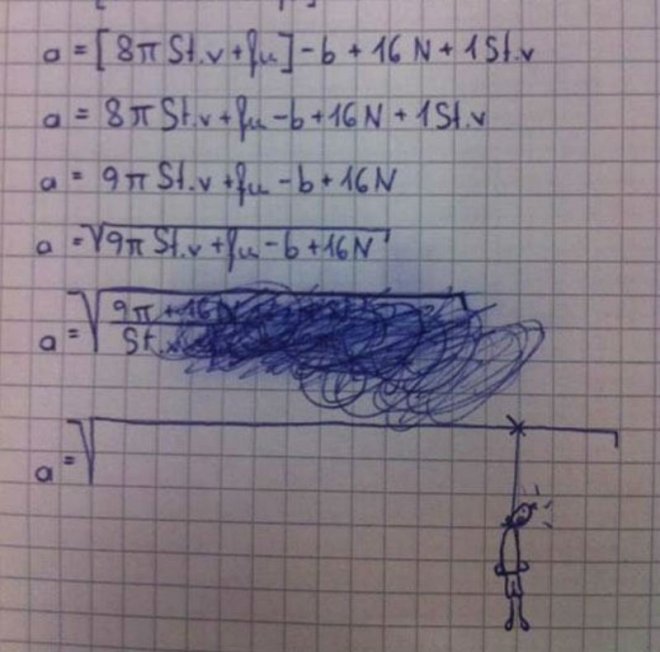 a = [8π St.v + fu] - b + 16 N + 1 St.v
a = 8π St.v + fu - b + 16 N + 1 St.v
a = 9π St.v + fu - b + 16 N
a = √9π St.v + fu - b + 16 N
a = √9π + 16 N
St.
a = √